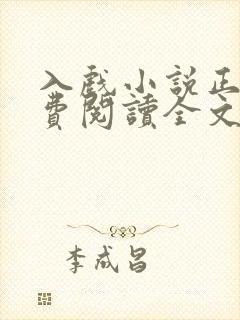 入戲小説正
費閱讀全文
李成昌